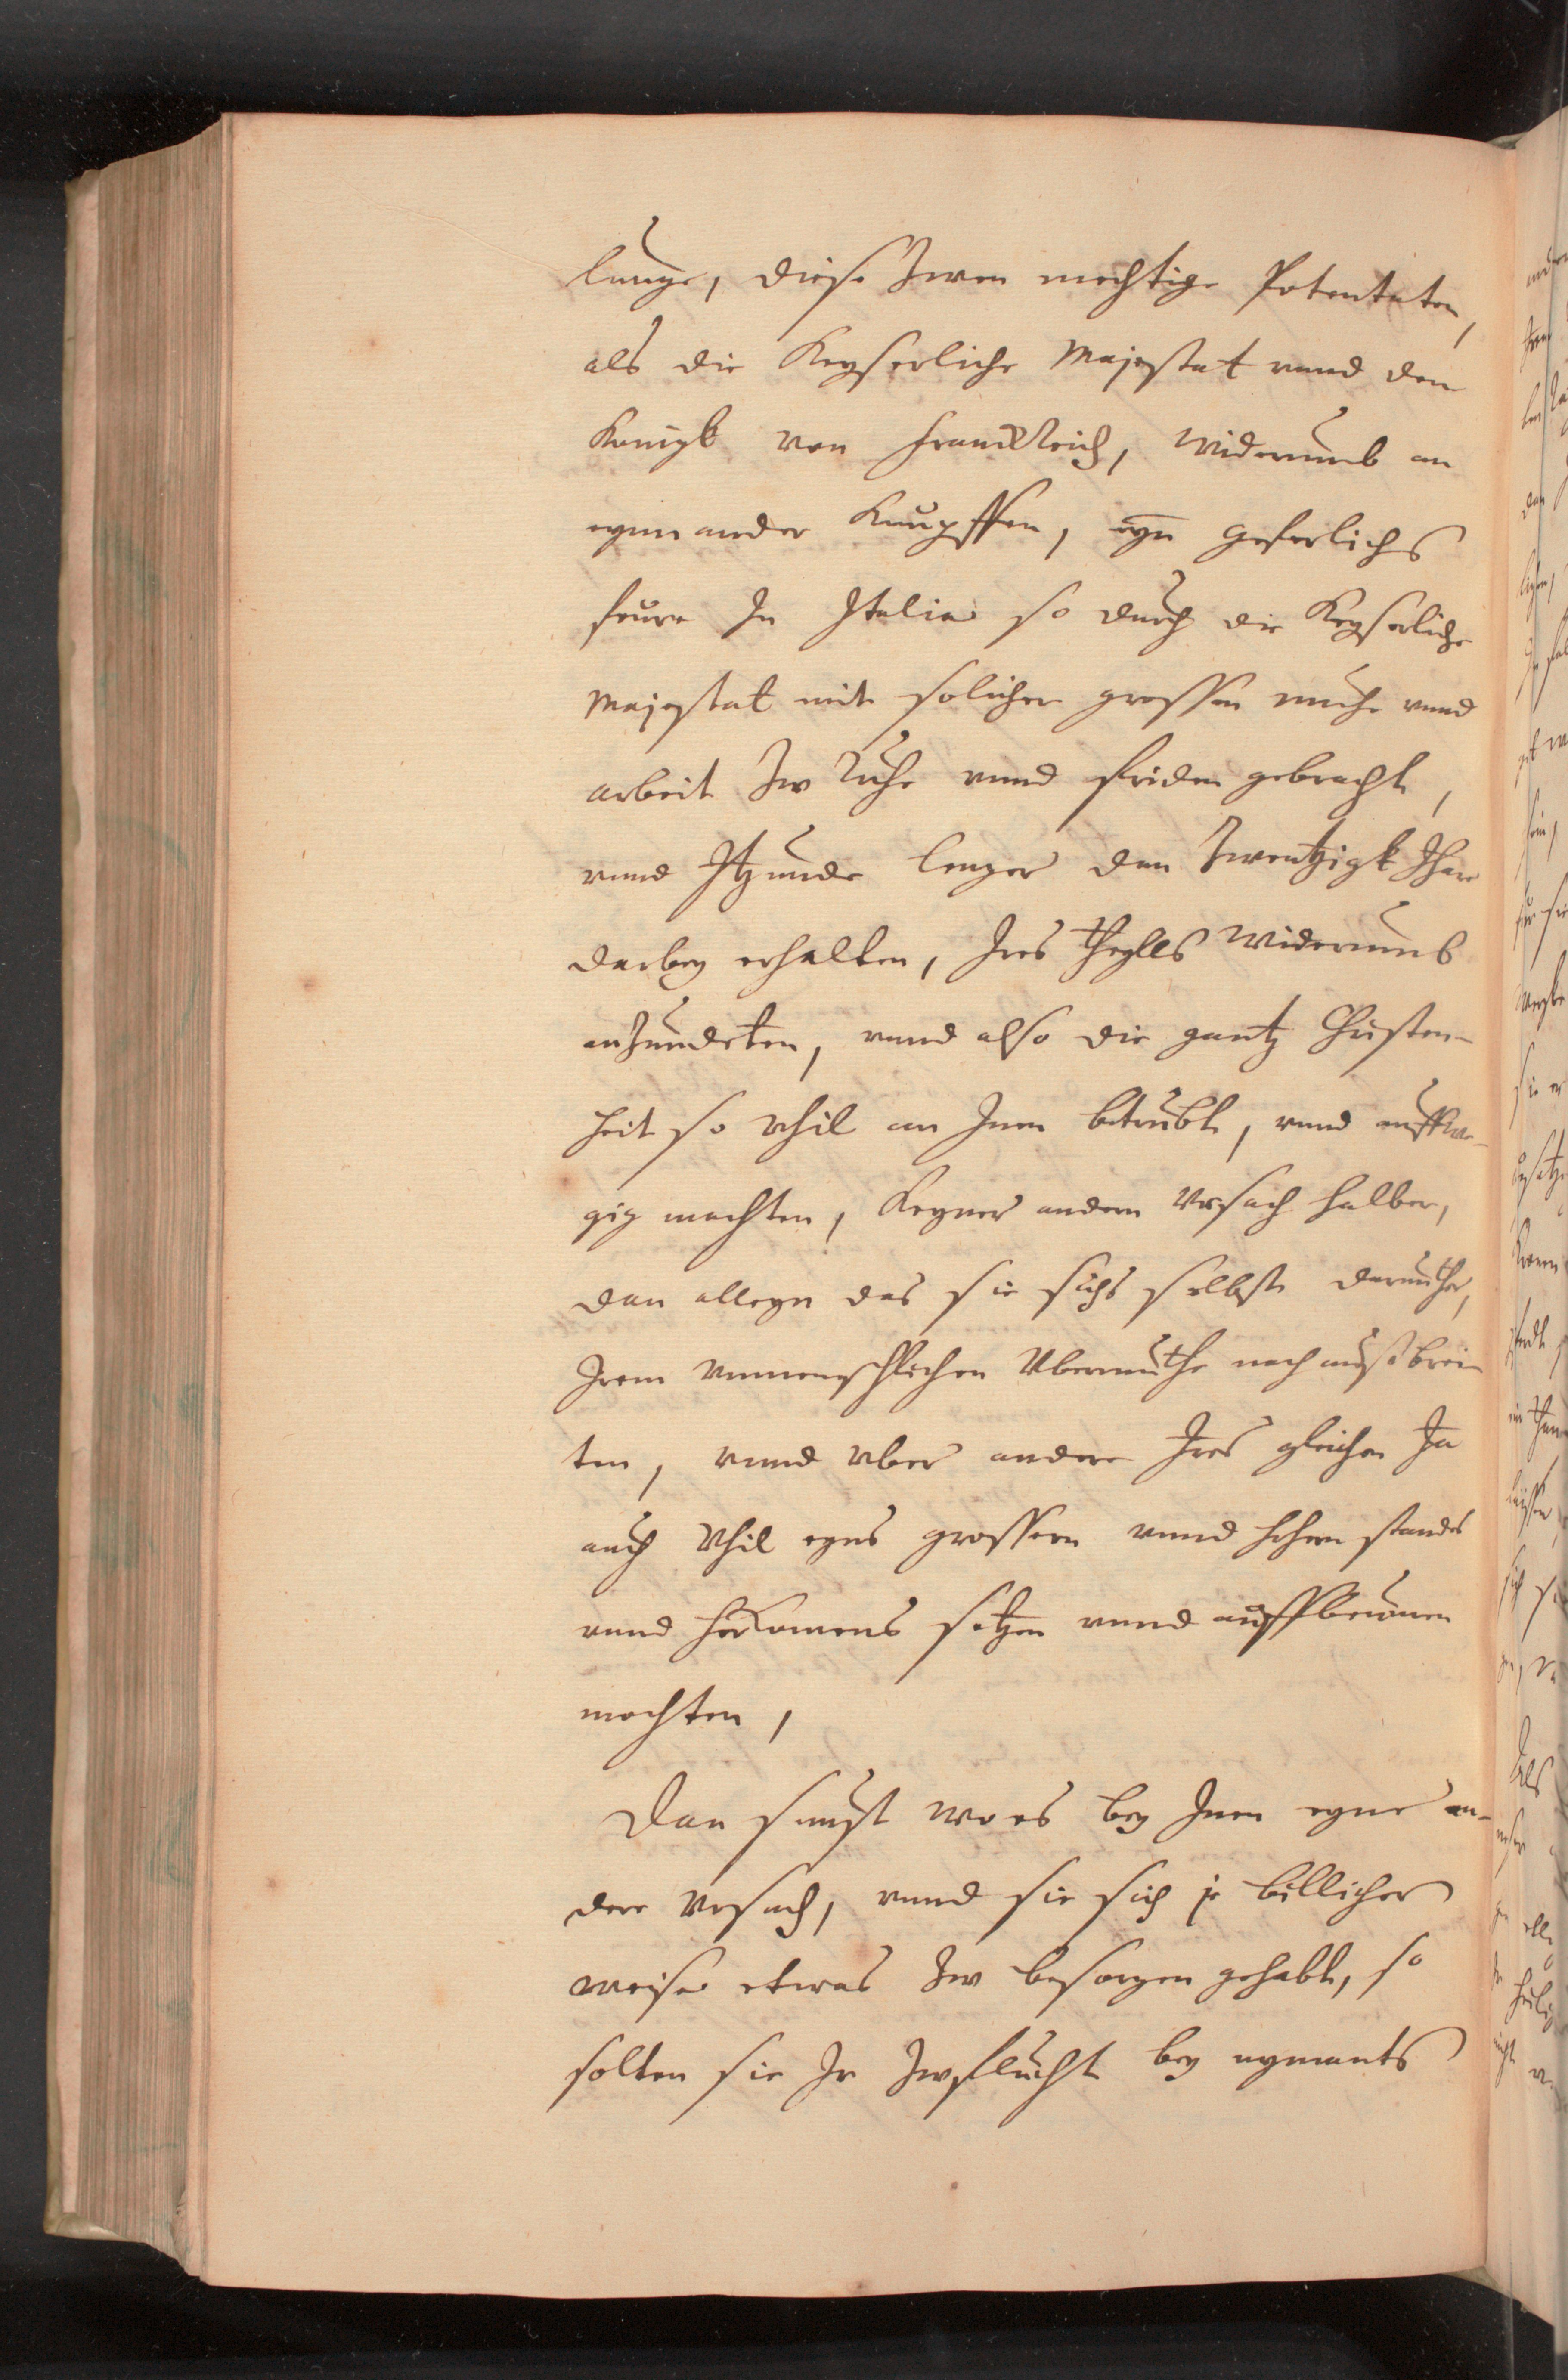 lange, diese zwen mechtige Potentaten,
als die Keyserliche Majestat vnnd den
Konigk von Franckreich, widerumb an
eynnander knupffen, eyn geferlichs
feure In Italia so durch die Keyserliche
Majestat mit solicher grossen muhe vnnd
arbeit zw Ruhe vnnd friden gebracht,
vnnd Itzunde lenger dan zwentzigk Jhare
darbey erhalten, Ires theylls widerumb
anzundeten, vnnd also die gantz Christen-
heit so vhil an Inen betrubt, vnnd auffrue-
gig machten, Keyner andern vrsach halber,
dan alleyn das sie sichs selbst
Irem vnmenschlichen Vbermuthe noch außbrei
ten, vnnd vber andere Ires gleichen Ja
auch vhil eyns grossern vnnd hohern standes
vnnd herkomens setzen vnnd auffbewmen
mochten,
Dan sunst wo es bey Inen eyne an-
dere vrsach, vnnd sie sich je billicher
weise etwas zw besorgen gehabt, so
solten sie Ir zwflucht bey nymants